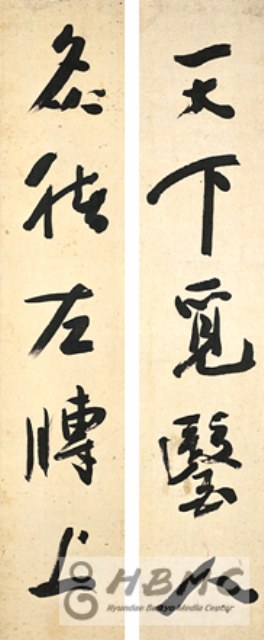 天下覓醫人
灸猪左膊上
HBMC
Hyundae Bulkyo Media Center